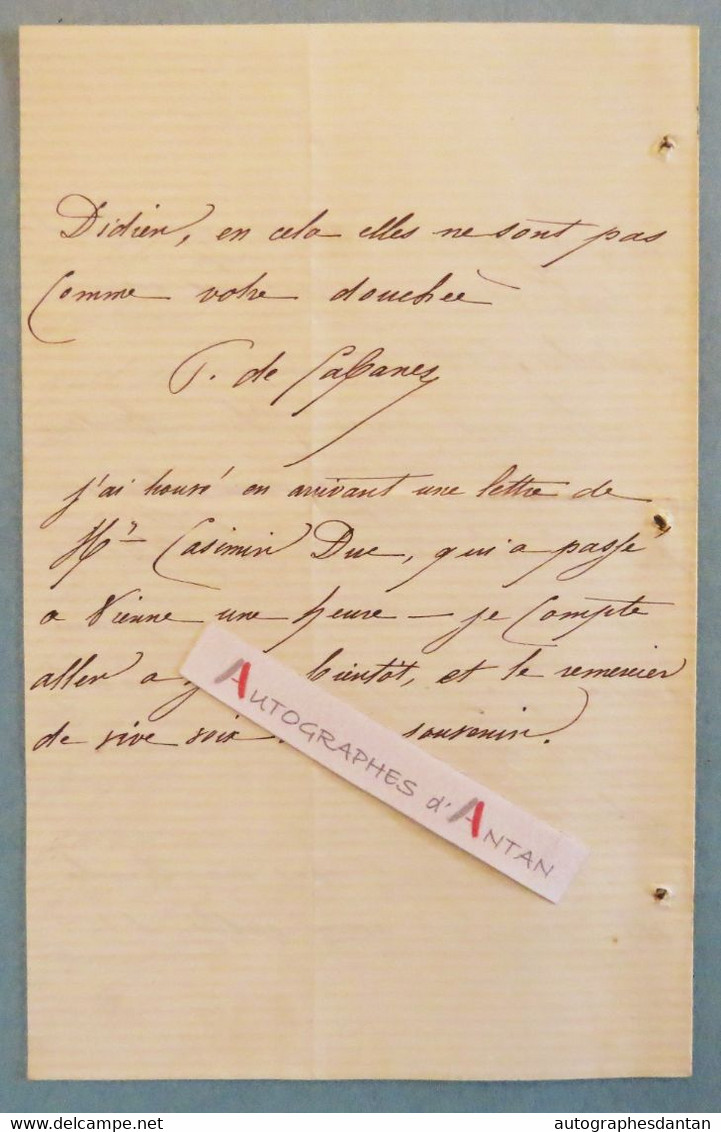 Didier, en cela elles ne sont pas
Comme votre douchée
P. de Cabanes
j'ai trouvé en arrivant une lettre de
Mr Casimir Duc, qui a passé
a Vienne une heure — je Compte
aller a bientôt, et le remercier
de vive voix souvenir.
AUTOGRAPHES d'ANTAN
delcampe.net
autographesdantan